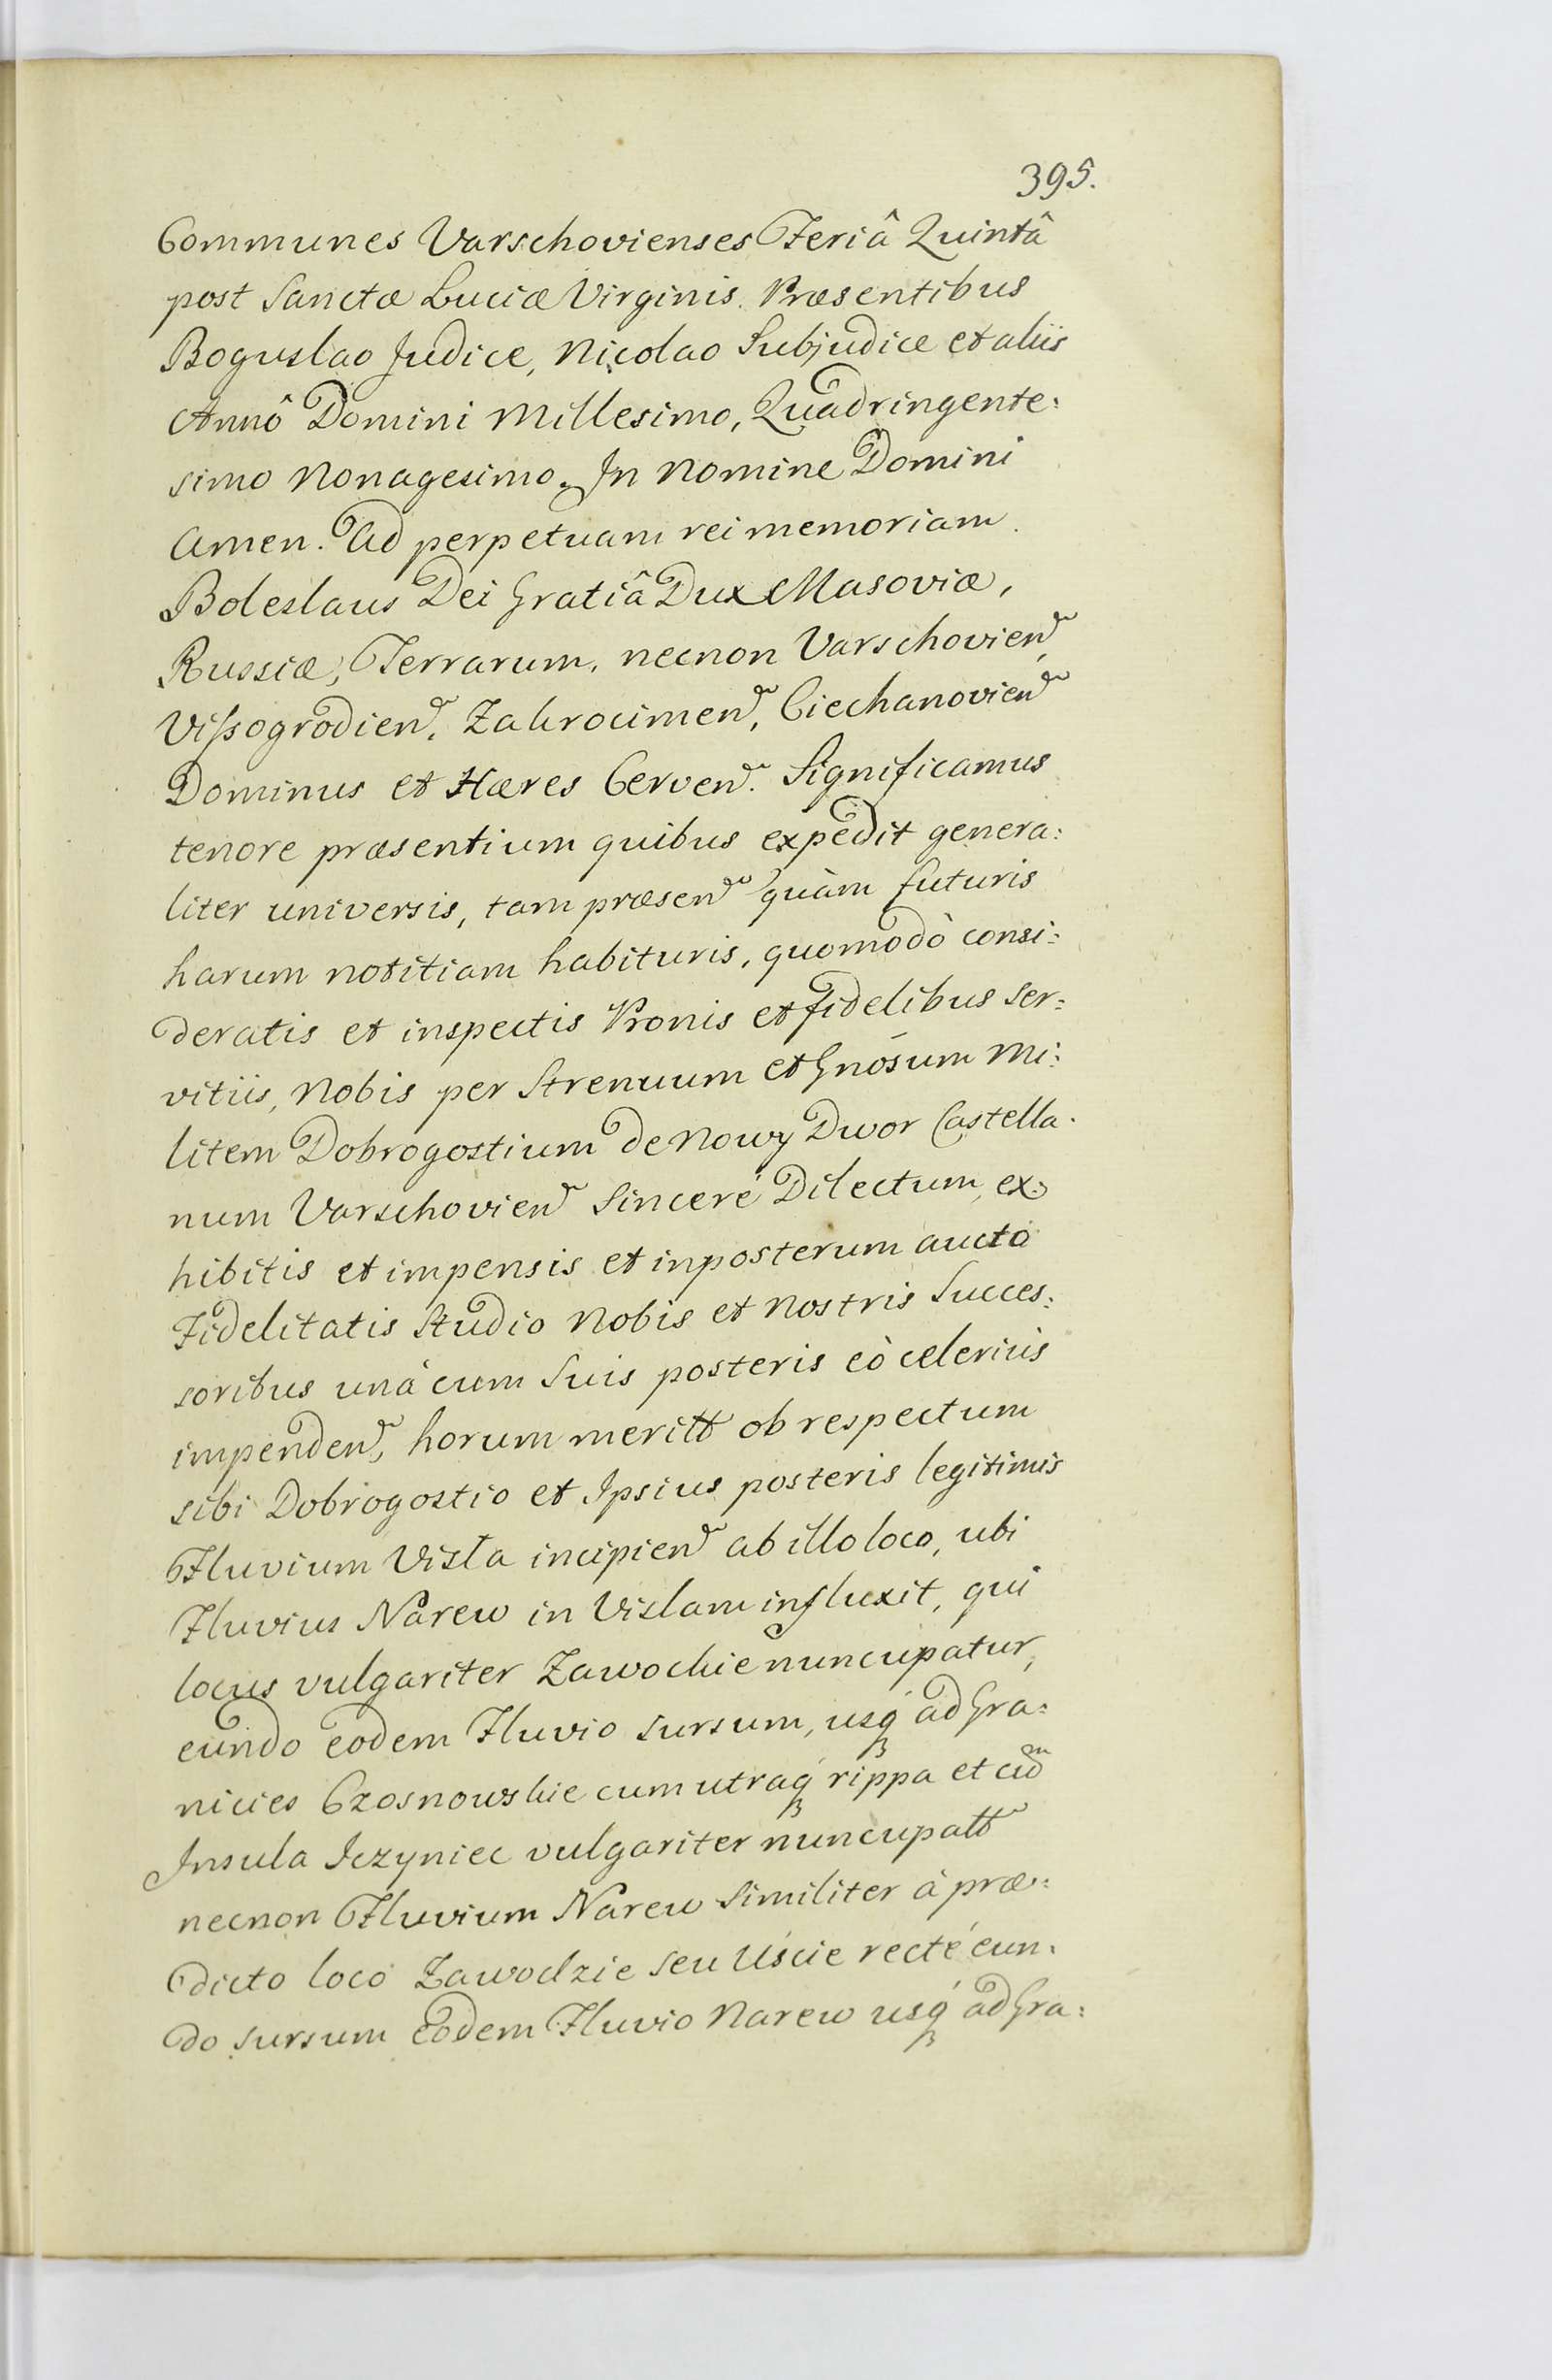 395.
Communes Varschovienses Feriâ Quintâ
post Sanctæ Luciæ Virginis. Præsentibus
Boguslao Judice, Nicolao Subjudice et aliis
Annô Domini Millesimo, Quadringente:
simo Nonagesimo. In Nomine Domini
Amen. Ad perpetuam rei memoriam.
Boleslaus Dei Gratiâ Dux Masoviæ,
Russiæ, Terrarum, necnon Varschovien̄,
Vissogrodien̄, Zakrocimen̄, Ciechanovien̄
Dominus et Hæres Cerven̄. Significamus
tenore præsentium quibus expedit genera:
liter universis, tam præsen̄ quàm futuris
harum notitiam habituris, quomodò consi:
deratis et inspectis Pronis et fidelibus ser:
vitiis, Nobis per Strenuum et Gnósum Mi:
litem Dobrogostium de Nowy Dwor Castella:
num Varschovien̄ Sinceré Dilectum, ex:
hibitis et impensis et inposterum aucto
Fidelitatis Studio Nobis et Nostris Succes:
soribus uná cum Suis posteris eò celeriùs
impenden̄, horum meritt ob respectum
sibi Dobrogostio et Ipsius posteris legitimis
Fluvium Visla incipien̄ ab illo loco, ubi
Fluvius Narew in Vislam influxit, qui
locus vulgariter Zawodzie nuncupatur,
eundo eodem Fluvio sursum, usq́ ad Gra:
nicies Czosnowskie cum utraq́ rippa et cum̄
Insula Jczyniec vulgariter nuncupatt
necnon Fluvium Narew Similiter à præ:
dicto loco Zawodzie seu Uście recté eun:
do sursum eodem Fluvio Narew usq́ ad Gra: